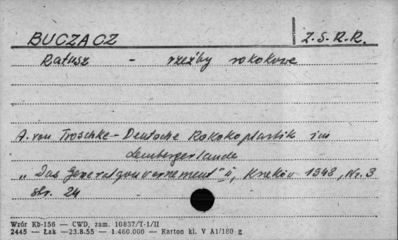 BUCZACZ Z.S.R.R.
Ratusz - rzeźby rokokowe
A. von Troschke - Deutsche Rokokoplastik im
Lembergerlande
"Das Generalgouvernement", Kraków 1943, Nr. 3
str. 24
Wzór Kb-156 — CWD, zam. 10837/T-1/II
2445 — Łak —23.8.55 — 1.460.000 — Karton kl. V A1/180 g